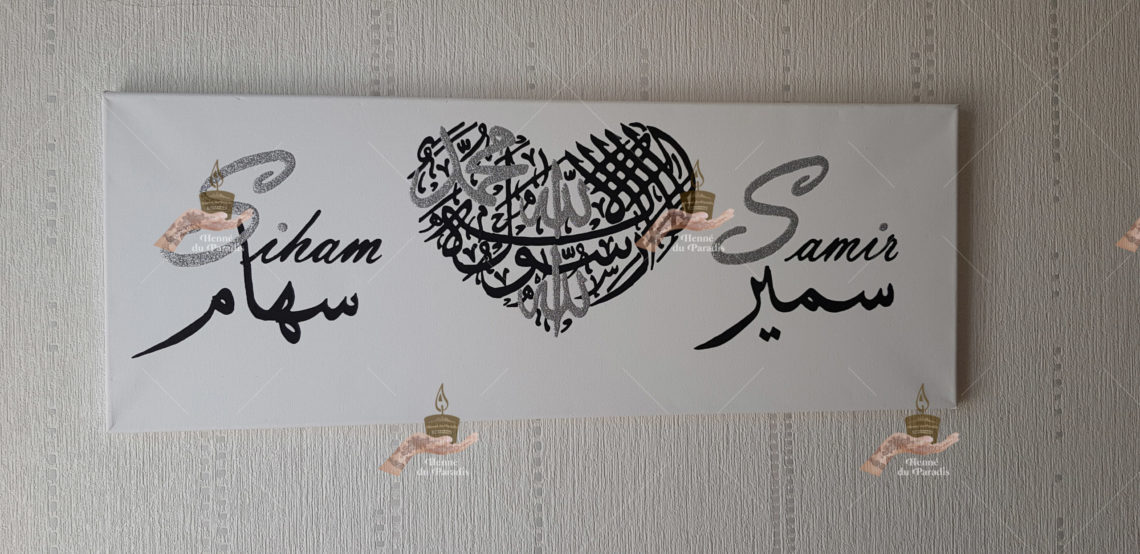 Siham
سهام
لا إله إلا الله محمد رسول الله
Samir
سمير
Henné
du Paradis
Henné
du Paradis
Henné
du Paradis
Henné
du Paradis